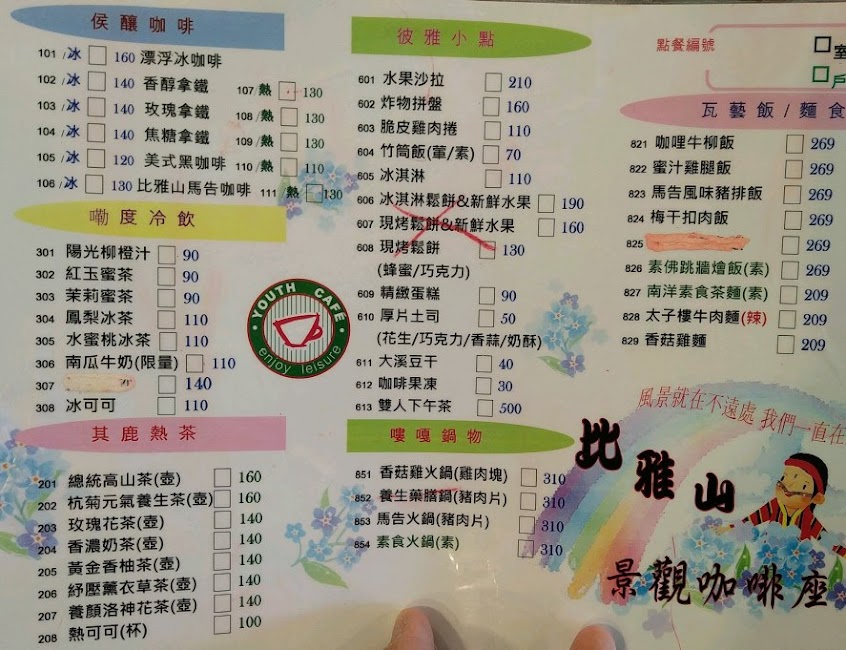 侯釀咖啡
101/冰 □ 160 漂浮冰咖啡
102/冰 □ 140 香醇拿鐵 107/熱 □ 130
103/冰 □ 140 玫瑰拿鐵 108/熱 □ 130
104/冰 □ 140 焦糖拿鐵 109/熱 □ 130
105/冰 □ 120 美式黑咖啡 110/熱 □ 110
106/冰 □ 130 比雅山馬告咖啡 111/熱 □ 130
嘞度冷飲
301 陽光柳橙汁 □ 90
302 紅玉蜜茶 □ 90
303 茉莉蜜茶 □ 90
304 鳳梨冰茶 □ 110
305 水蜜桃冰茶 □ 110
306 南瓜牛奶(限量) □ 110
307 □ 140
308 冰可可 □ 110
其鹿熱茶
201 總統高山茶(壺) □ 160
202 杭菊元氣養生茶(壺) □ 160
203 玫瑰花茶(壺) □ 140
204 香濃奶茶(壺) □ 140
205 黃金香柚茶(壺) □ 140
206 紓壓薰衣草茶(壺) □ 140
207 養顏洛神花茶(壺) □ 140
208 熱可可(杯) □ 100
YOUTH CAFÉ
enjoy leisure
彼雅小點
601 水果沙拉 □ 210
602 炸物拼盤 □ 160
603 脆皮雞肉捲 □ 110
604 竹筒飯(葷/素) □ 70
605 冰淇淋 □ 110
606 冰淇淋鬆餅&新鮮水果 □ 190
607 現烤鬆餅&新鮮水果 □ 160
608 現烤鬆餅 □ 130
(蜂蜜/巧克力)
609 精緻蛋糕 □ 90
610 厚片土司 □ 50
(花生/巧克力/香蒜/奶酥)
611 大溪豆干 □ 40
612 咖啡果凍 □ 30
613 雙人下午茶 □ 500
嘍嘎鍋物
851 香菇雞火鍋(雞肉塊) □ 310
852 養生藥膳鍋(豬肉片) □ 310
853 馬告火鍋(豬肉片) □ 310
854 素食火鍋(素) □ 310
點餐編號
□室
□戶
瓦藝飯/麵食
821 咖哩牛柳飯 □ 269
822 蜜汁雞腿飯 □ 269
823 馬告風味豬排飯 □ 269
824 梅干扣肉飯 □ 269
825 □ 269
826 素佛跳牆燴飯(素) □ 269
827 南洋素食茶麵(素) □ 209
828 太子樓牛肉麵(辣) □ 209
829 香菇雞麵 □ 209
風景就在不遠處 我們一直在
比雅山
景觀咖啡座